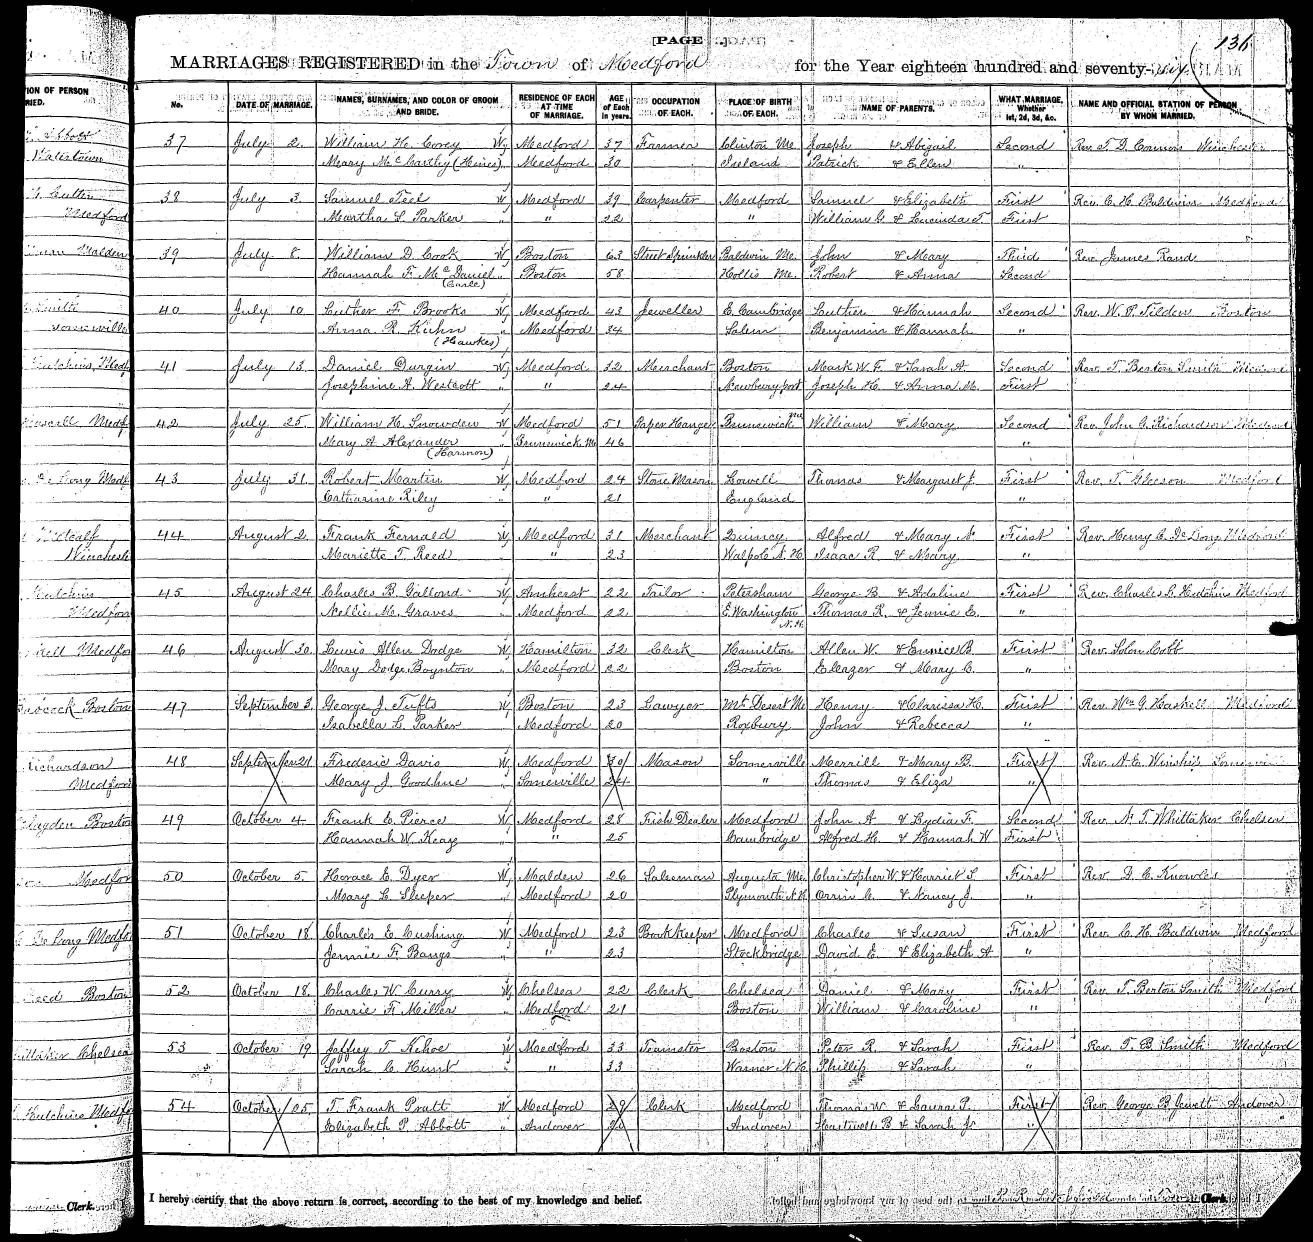 [PAGE ]
136
MARRIAGES REGISTERED in the Town of Medford for the Year eighteen hundred and seventy-six
No. DATE OF MARRIAGE. NAMES, SURNAMES, AND COLOR OF GROOM AND BRIDE. RESIDENCE OF EACH AT TIME OF MARRIAGE. AGE of Each in years. OCCUPATION OF EACH. PLACE OF BIRTH OF EACH. NAME OF PARENTS. WHAT MARRIAGE, Whether 1st, 2d, 3d, &c. NAME AND OFFICIAL STATION OF PERSON BY WHOM MARRIED.
37 July 2. William H. Corey W Medford 37 Farmer Clinton Me. Joseph & Abigail Second Rev. T. D. Connors Winchester
Mary McCarthy (Hines) " Medford 30 Ireland Patrick & Ellen "
38 July 3. Samuel Teel W Medford 39 Carpenter Medford Samuel & Elizabeth First Rev. C. H. Baldwin Medford
Martha L. Parker " " 22 " William G. & Lucinda T. First
39 July 8. William D. Cook W Boston 63 Street Sprinkler Baldwin Me. John & Mary Third Rev. James Rand
Hannah F. McDaniel " Boston 58 Hollis Me. Robert & Anna Second
(Earle)
40 July 10 Luther F. Brooks W Medford 43 Jeweller E. Cambridge Luther & Hannah Second Rev. W. P. Tilden Boston
Anna R. Kuhn " Medford 34 Salem Benjamin & Hannah "
(Hawkes)
41 July 13. Daniel Durgin W Medford 32 Merchant Boston Mark W. F. & Sarah A. Second Rev. T. Berton Smith
Josephine A. Westcott " " 24 Newburyport Joseph H. & Anna M. First
42 July 25. William H. Snowden W Medford 51 Paper Hanger Brunswick Me William & Mary Second Rev. John G. Richardson Medford
Mary A. Alexander Brunswick Me 46 "
(Harmon)
43 July 31. Robert Martin W Medford 24 Stone Mason Lowell Thomas & Margaret J. First Rev. T. Gleeson Medford
Catharine Riley " " 21 England "
44 August 2. Frank Fernald W Medford 31 Merchant Quincy Alfred & Mary A. First Rev. Henry C. DeLong Medford
Mariette T. Reed " " 23 Walpole N. H. Isaac R. & Mary "
45 August 24 Charles B. Gallond W Amherst 22 Tailor Petersham George B. & Adaline First Rev. Charles L. Hutchins Medford
Nellie M. Graves Medford 22 E. Washington Thomas R. & Jennie E. "
N. H.
46 August 30. Lewis Allen Dodge W Hamilton 32 Clerk Hamilton Allen W. & Eunice B. First Rev. Solon Cobb
Mary Dodge Boynton " Medford 22 Boston Eleazer & Mary C. "
47 September 3. George J. Tufts W Boston 23 Lawyer Mt. Desert Me Henry & Clarissa H. First Rev. Wm G. Haskell Medford
Isabella L. Parker " Medford 20 Roxbury John & Rebecca "
48 September 21 Frederic Davis W Medford 30 Mason Somerville Merrill & Mary B. First Rev. A. E. Winship Somerville
Mary J. Goodhue " Somerville 24 " Thomas & Eliza "
49 October 4 Frank E. Pierce W Medford 28 Fish Dealer Medford John A & Lydia F. Second Rev. N. T. Whittaker Chelsea
Hannah W. Keay " " 25 Cambridge Alfred H. & Hannah W First
50 October 5. Horace E. Dyer W Malden 26 Salesman Augusta Me. Christopher W & Harriet S. First Rev. D. C. Knowles
Mary L. Sleeper " Medford 20 Plymouth N. H. Orrin C. & Nancy J. "
51 October 18. Charles E. Cushing W Medford 23 Book Keeper Medford Charles & Susan First Rev. C. H. Baldwin Medford
Jennie F. Bangs " " 23 Stockbridge David E. & Elizabeth A "
52 October 18. Charles W. Curry W Chelsea 22 Clerk Chelsea Daniel & Mary First Rev. T. Berton Smith Medford
Carrie F. Miller " Medford 21 Boston William & Caroline "
53 October 19 Jaffrey T. Kehoe W Medford 33 Teamster Boston Peter R. & Sarah First Rev. T. B. Smith Medford
Sarah C. Hunt " " 33 Warner N. H. Phillip & Sarah "
54 October 25. T. Frank Pratt W Medford 29 Clerk Medford Thomas W & Laura P. First Rev. George B. Jewett Andover
Elizabeth P. Abbott " Andover Andover Hartwell B. & Sarah J. "
I hereby certify that the above return is correct, according to the best of my knowledge and belief.
Clerk.